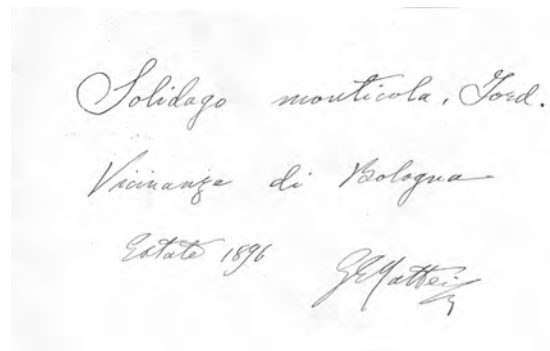 Solidago monticola, Jord.
Vicinanze di Bologna
Estate 1896
GEMattei